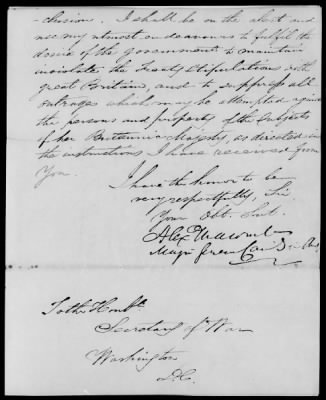 -clusion. I shall be on the alert and
use my utmost endeavours to fulfil the
desire of the Government to maintain
inviolate the Treaty Stipulations with
great Britain, and to suppress all
outrages which may be attempted against
the persons and property of the Subjects
of her Britannic Majesty, as directed in
the instructions I have received from
You.
I have the honor to be
very respectfully, Sir
Your Obt. Servt.
Alex Macomb
Major General Com
To the Honble
Secretary of War
Washington
D.C.